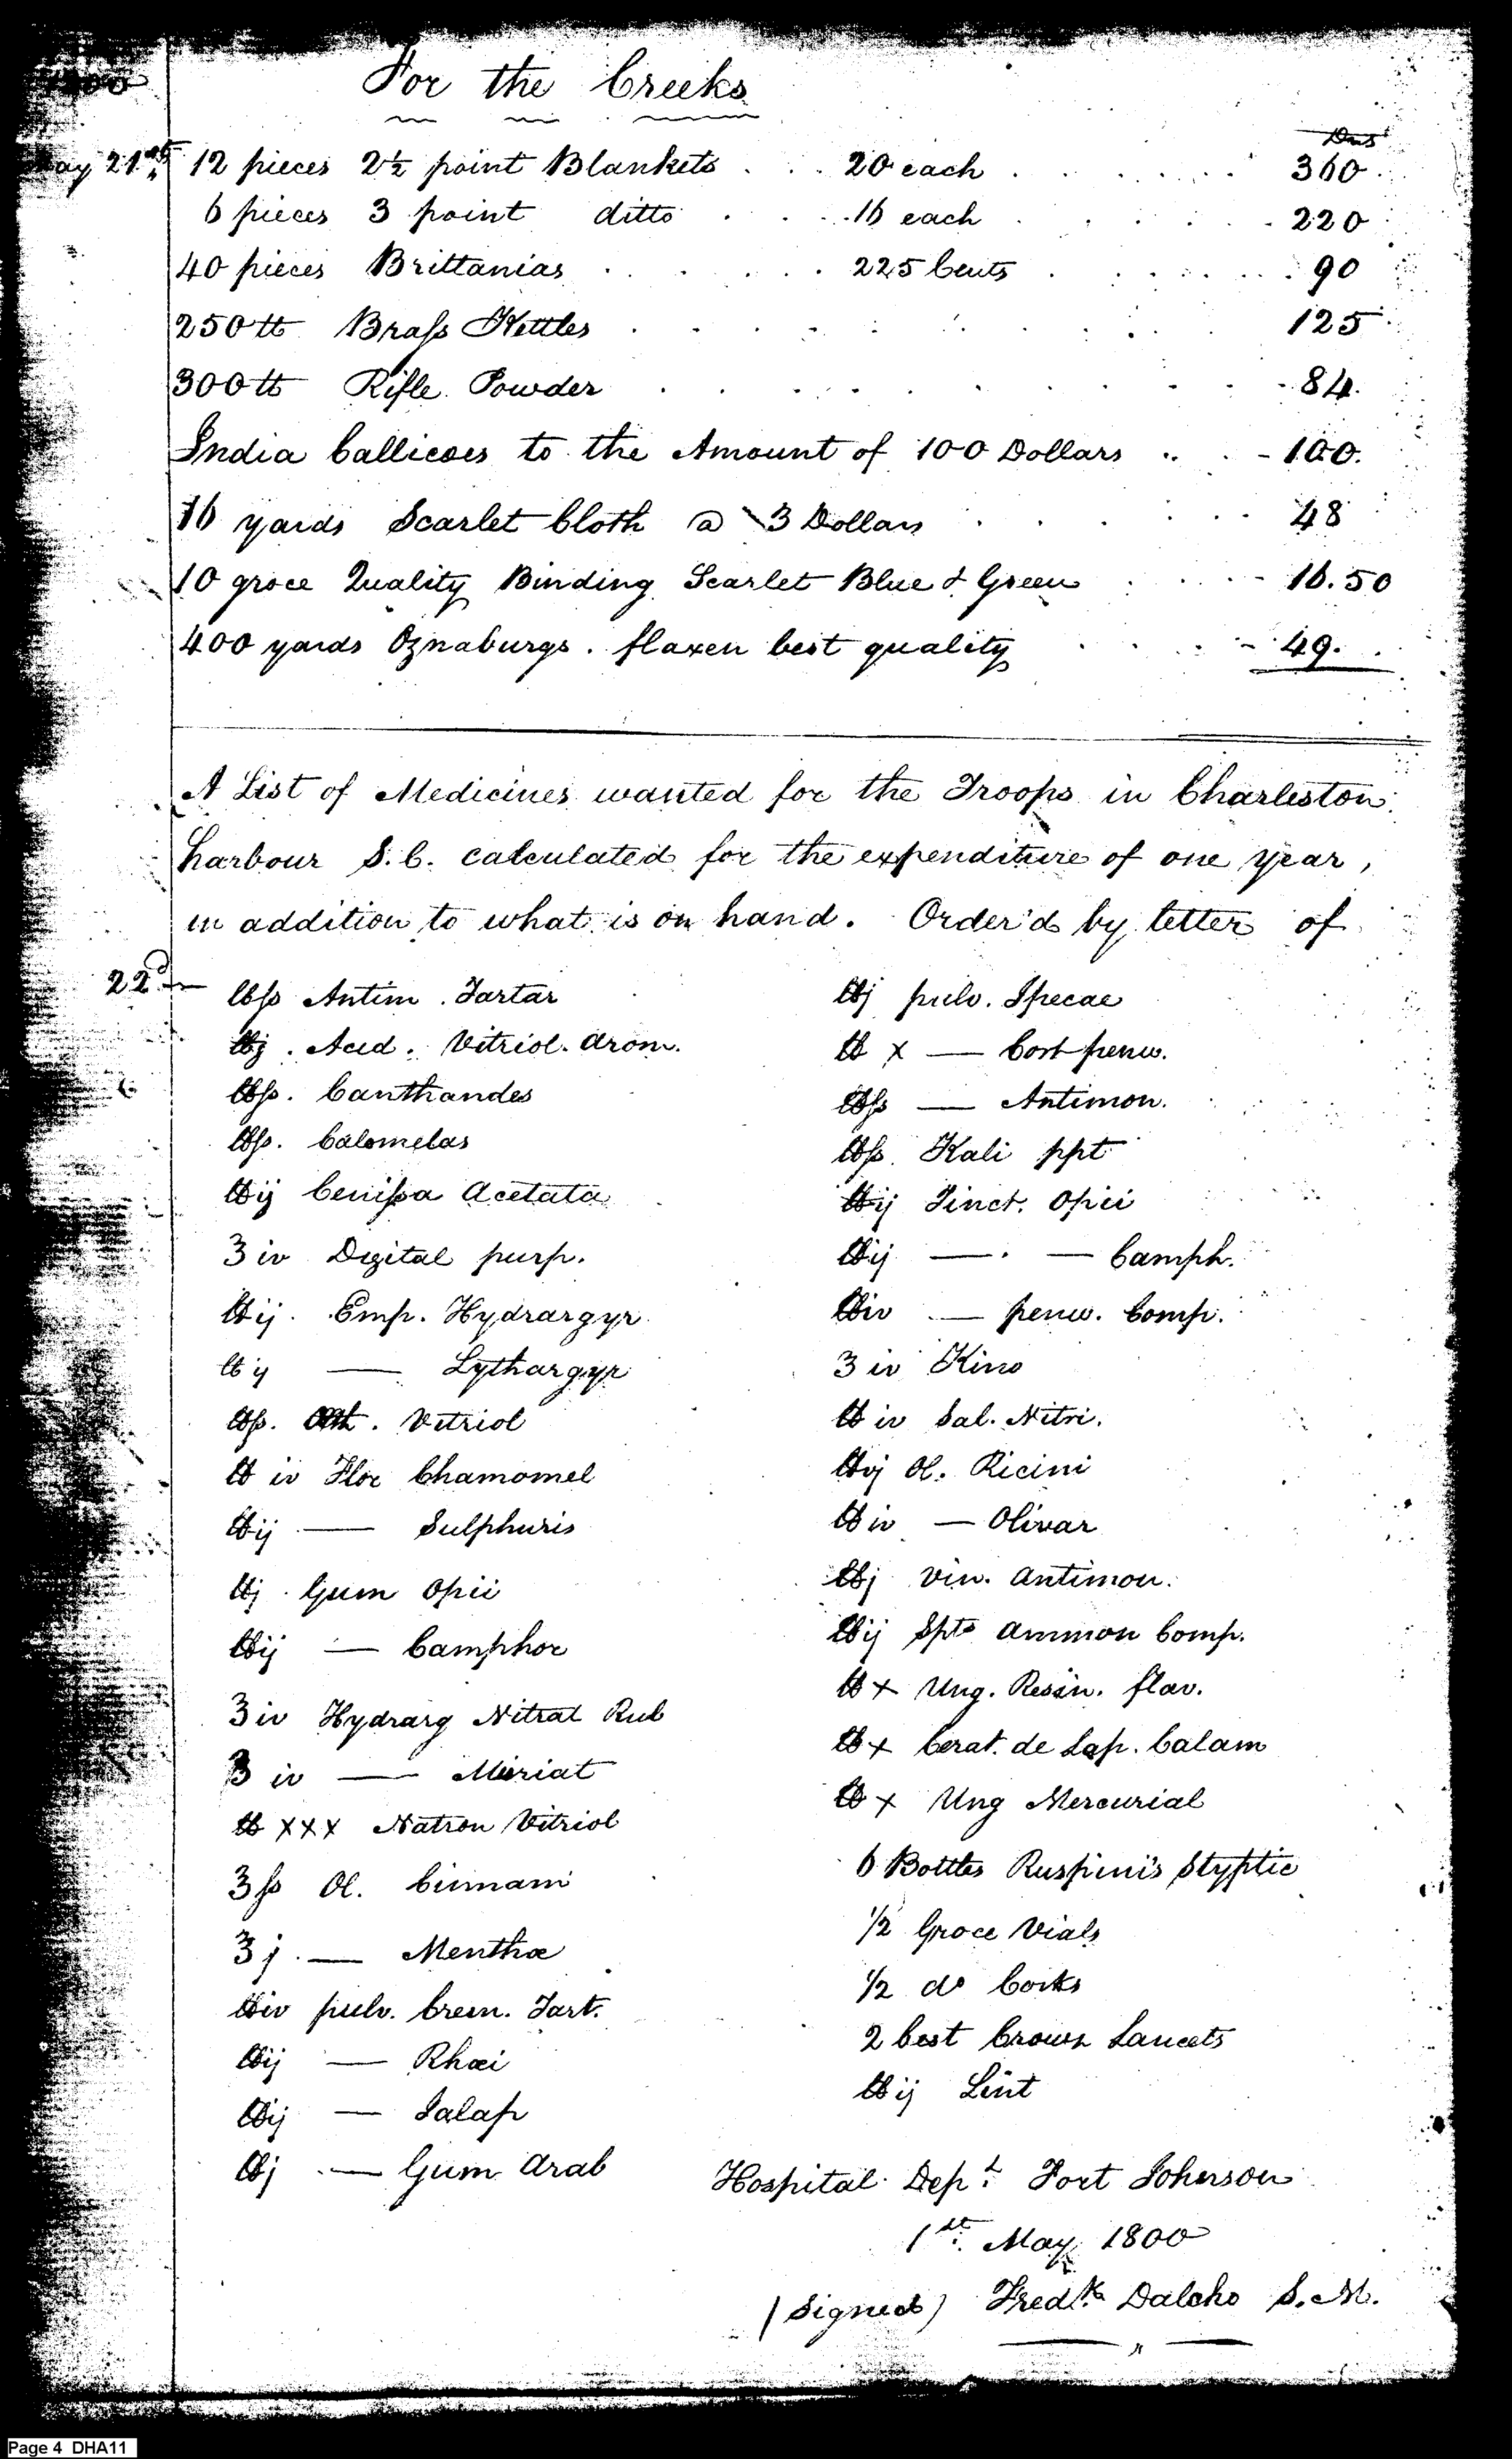 For the Creeks
Dns
May 21st 12 pieces 2½ point Blankets . . . 20 each . . . . . 360
6 pieces 3 point ditto . . . 16 each . . . . . 220
40 pieces Brittanias . . . . . 225 Cents . . . . . 90
250 lb Brass Kettles . . . . . 125
300 lb Rifle Powder . . . . . 84.
India Callicoes to the Amount of 100 Dollars . . . 100.
16 yards Scarlet Cloth @ 3 Dollars . . . . . 48
10 groce Quality Binding Scarlet Blue & Green . . . . 16.50
400 yards Oznaburgs. flaxen best quality . . . . 49.
A List of Medicines wanted for the Troops in Charleston
harbour S.C. calculated for the expenditure of one year,
in addition to what is on hand. Order'd by letter of
22d
lbss Antim. Tartar
lbj. Acid. Vitriol. Arom.
lbss. Canthandes
lbss. Calomelas
lbij Cerussa Acetata
ʒiv Digital purp.
lbij. Emp. Hydrargyr
lbij — Lythargyr
lbss. Vitriol
lb iv Flor Chamomel
lbij — Sulphuris
lbj. Gum Opii
lbij — Camphor
ʒiv Hydrarg Nitrat Rub
ʒiv — Muriat
lb xxx Natron Vitriol
ʒss Ol. Cinnam
ʒj. — Menthæ
lbiv pulv. Crem. Tart.
lbij — Rhæi
lbij — Jalap
lbj — Gum Arab
lbj pulv. Ipecac
lb x — Cort peruv.
lbss — Antimon.
lbss. Kali ppt
lbij Tinct. Opii
lbij — . — Camph.
lbiv — peruv. Comp.
ʒiv Kino
lb iv Sal. Nitri.
lbvj Ol. Ricini
lbiv — Olivar
lbj vin. antimon.
lbij Spts ammon Comp.
lb x Ung. Resin. flav.
lb x Cerat. de Lap. Calam
lb x Ung Mercurial
6 Bottles Ruspini's Styptic
1/2 Groce Vials
1/2 do Corks
2 best Crown Lancets
lbij Lint
Hospital Dept. Fort Johnson
1st. May 1800
(Signed) Fredk. Dalcho S.M.
Page 4 DHA11